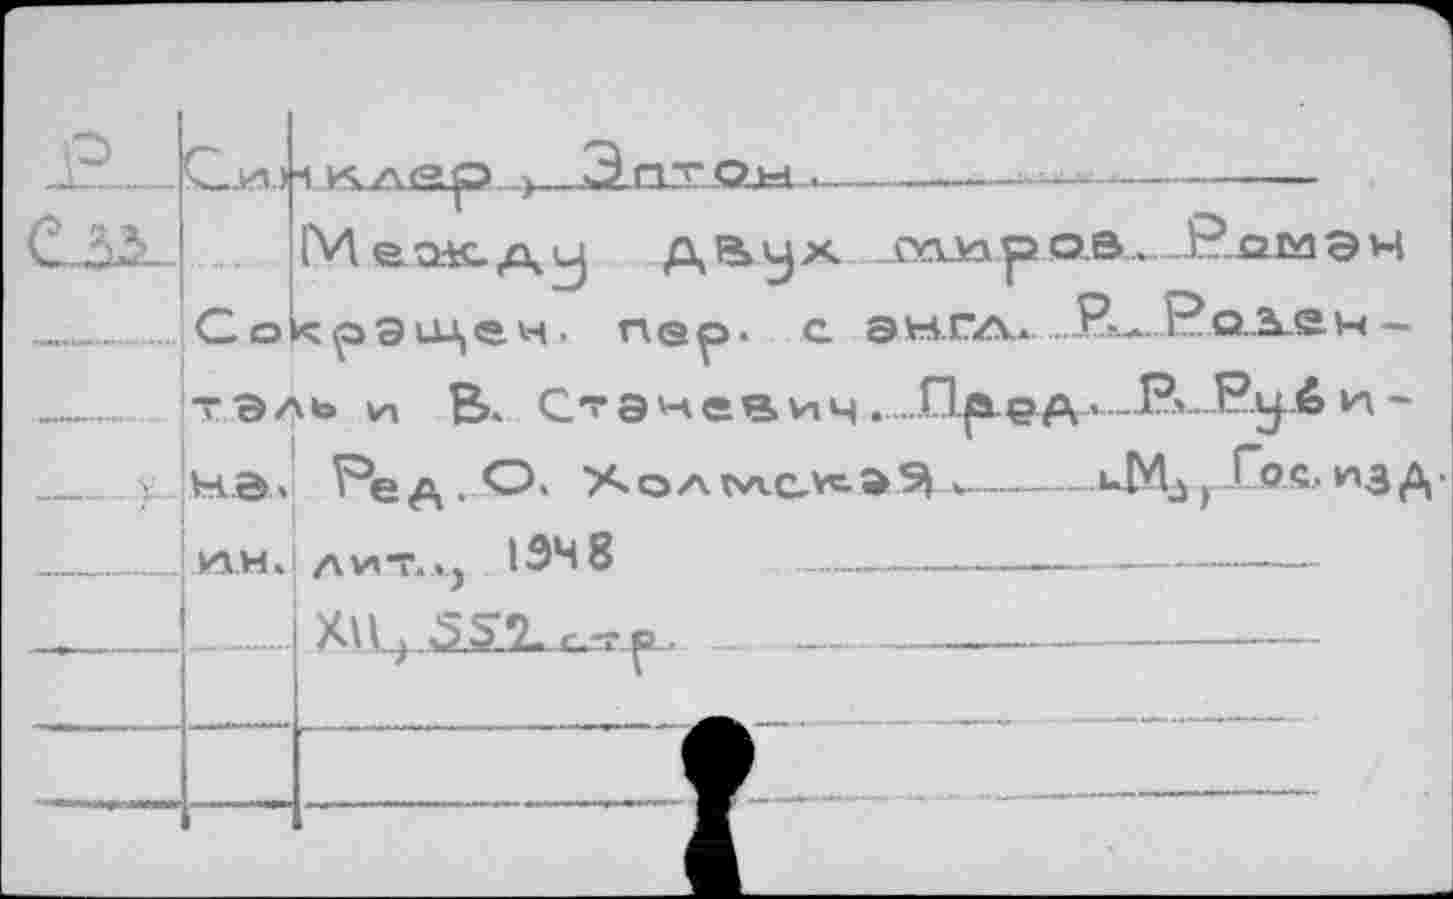 Р Синклер, Эптон.
С 33 Между двух миров. Роман
Сокращен. пер. с англ. Р. Розен-
таль и В. Станевич. Пред. Р. Руби-
на. Ред. О. Холмская. М., Гос. изд.
ин. лит., 1948
XII, 552 стр.